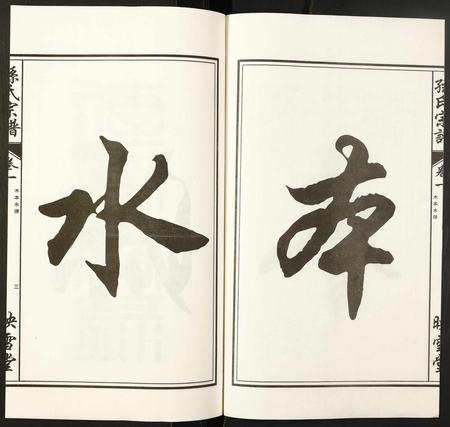 孫氏宗譜
卷一
木本水源
映雪堂
本
水
孫氏宗譜
卷一
木本水源
三
映雪堂